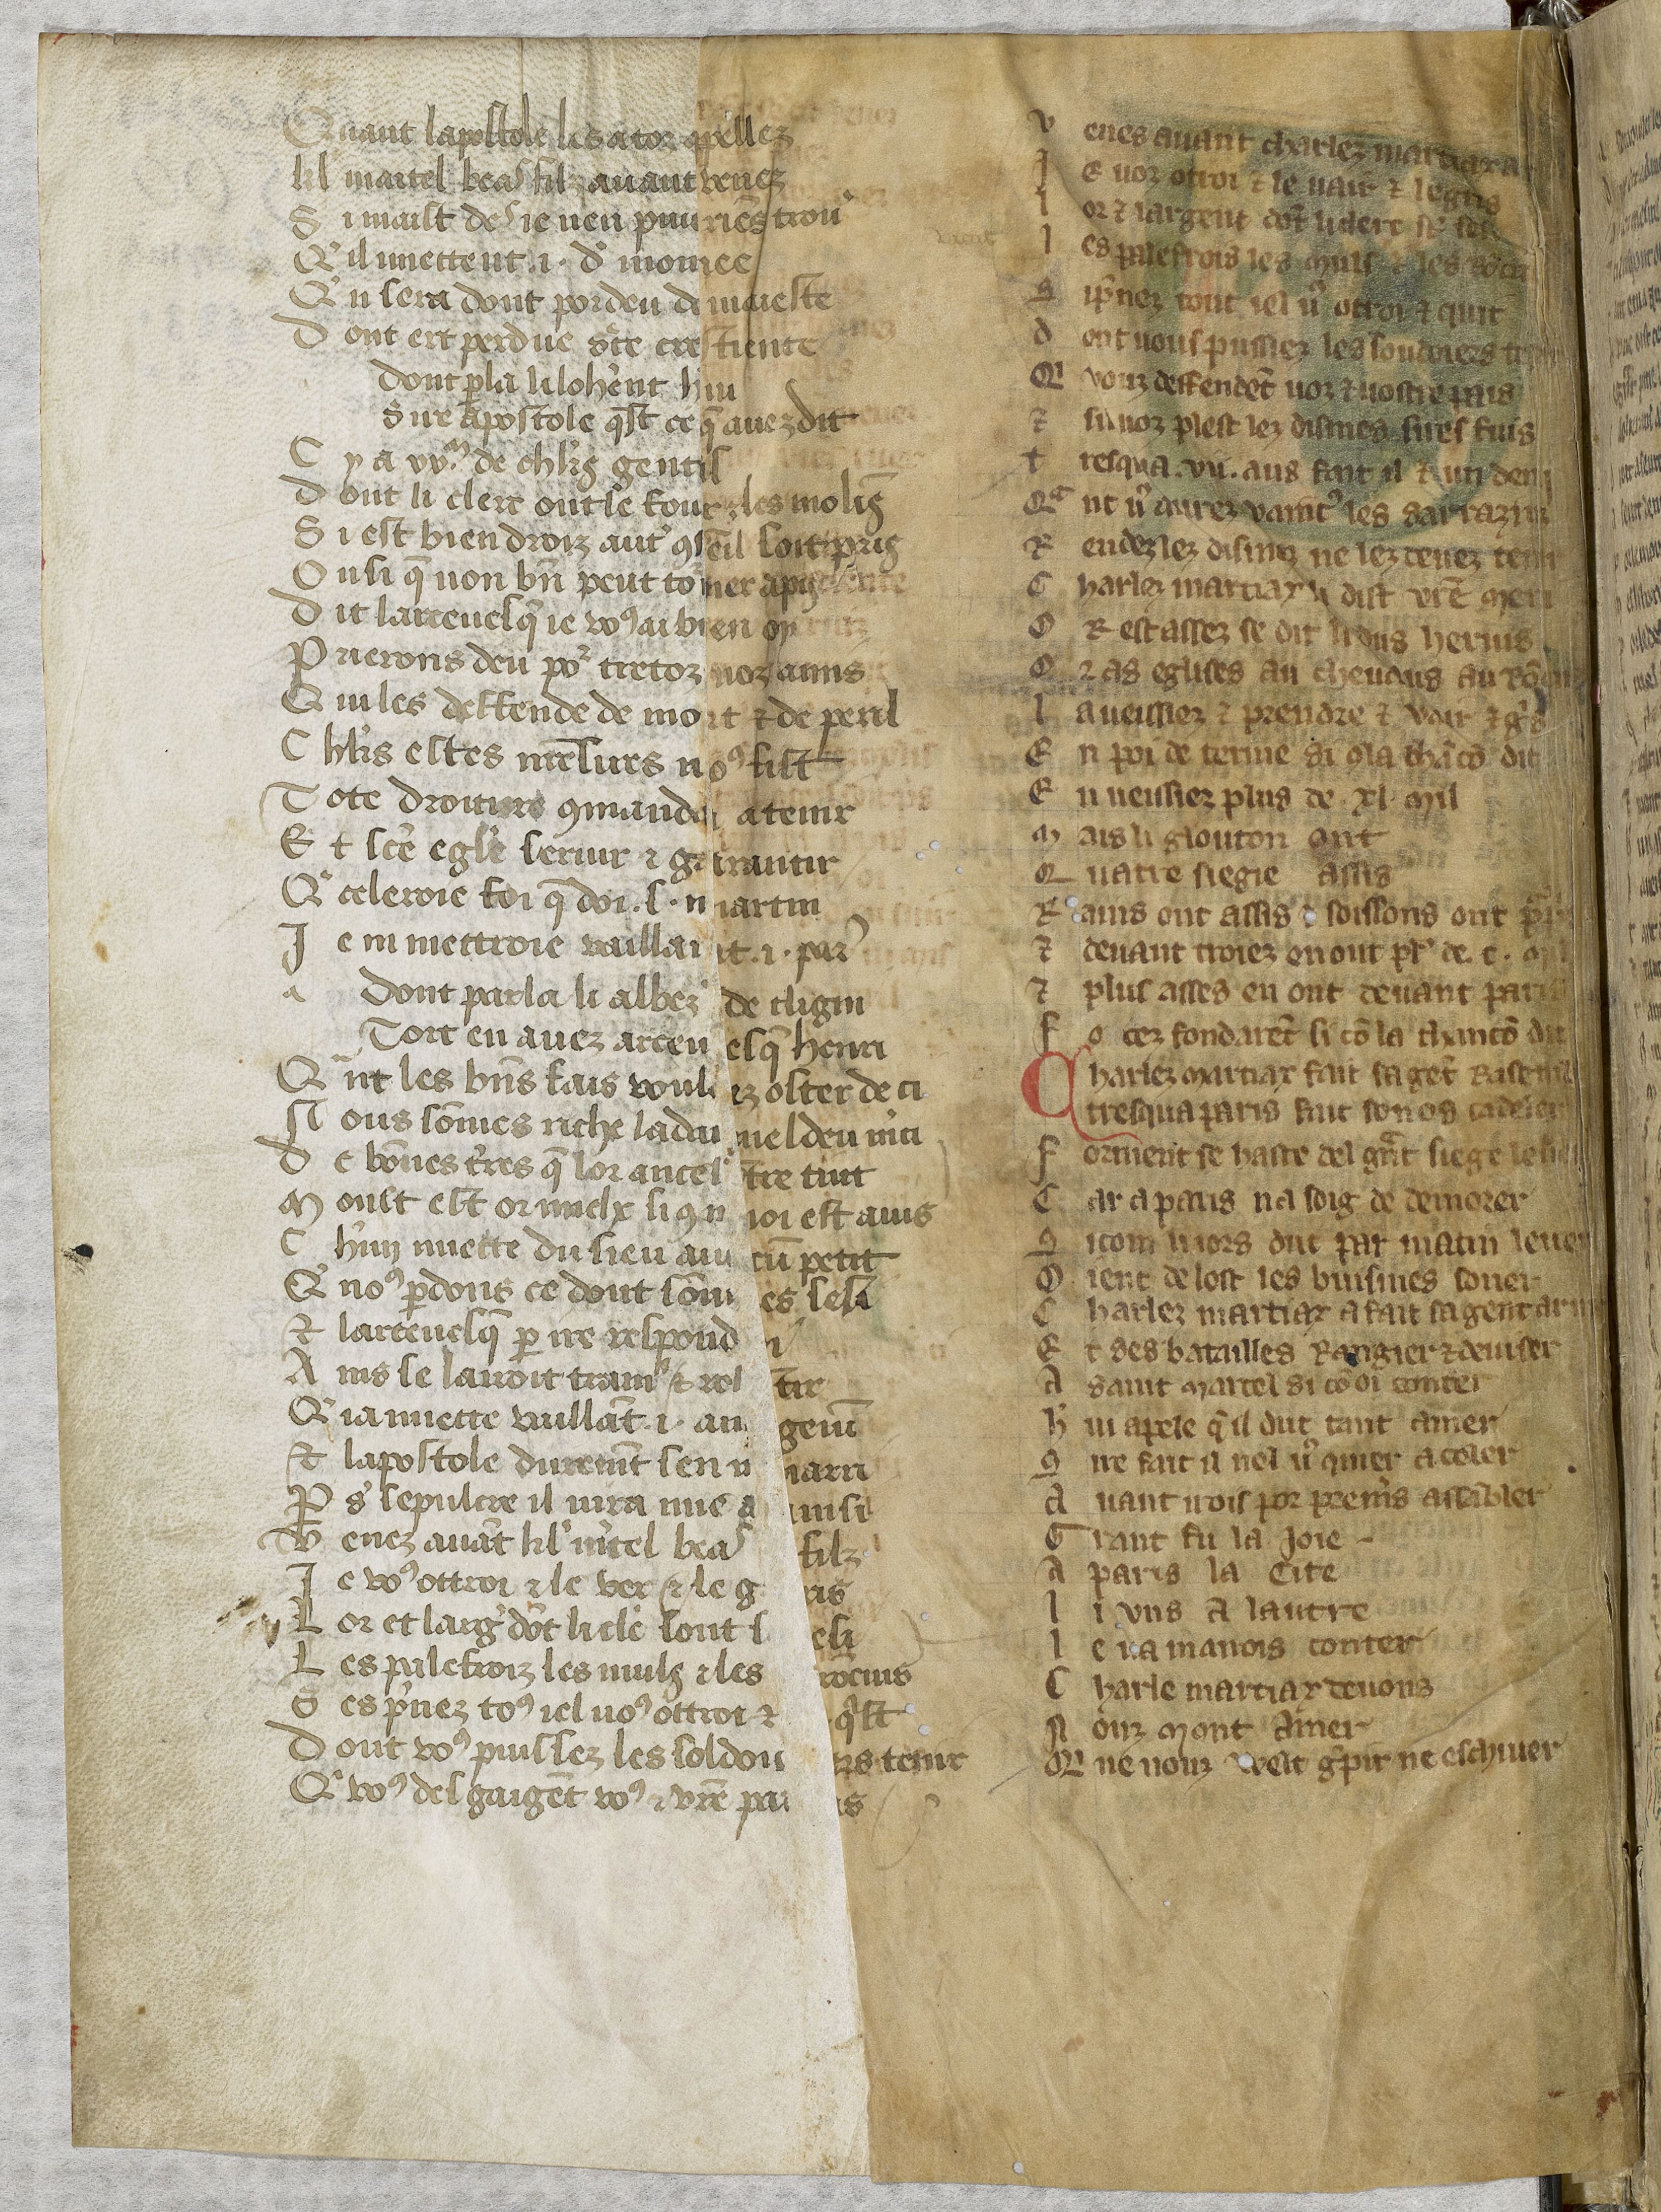 Quant lapostole les ator apellez
kl martel beaꝰ filz auant venez
S i mait deꝰ ie nen puu riēs trouˀ
Qˀil mettent .i. dˀ monee
Qˀn sera dont por deu de maieste
D ont ert perdue sc̄te crestiente
Dont ꝑla li lohˀent hui
Sire apostole qˀst ce q̄ auez dit
C y a vv.ᵐ de chl̓rs gentis
D ont li clerc ont le four z les molīs
S i est bien droiz autˀ ꝯseil soit pris
O u si q̄ non bn̄ peut torner a pis
D it larceuesq̄ ie voꝰ ai bien oy
P rierons deu poꝛ tretoz noz amis
Q ui les deffende de mort ⁊ de peril
C hl̓rs estes nr̄e sires noꝰ fist
T ote droiture ꝯmanda a tenir
E t sc̄e eglˀe seruir ⁊ garantir
Qˀ celeroie foi q̄ doi .s. martin
J e ni mettroie vaillant .i. parˀ
Dont parla li albez de cligni
Tort en auez arceuesq̄ henri
Q ˀnt les bn̄s fais voulez oster de ci
N ous sōmes riche la dammeldeu mˀci
D e bōnes tˀres q̄ lor ancestre tint
M oult est or mielx si ꝯ moi est auis
C hˀun mette du sien aucū petit
Qˀ noꝰ ꝑdons ce dont sōmes sesi
Et larceuesq̄ ꝑ ire respondi
A ins se lairoit traineˀ ⁊ rostir
Qˀ ia mette vaillāt .i. angeuī
Et lapostole duremt̄ sen marri
P ˀ s sepulcre il nira mie ainsi
V enez auāt klˀ mˀtel beaꝰ filz
J e voꝰ ottroi ⁊ le ver ⁊ le gris
L or et largˀ dōt li clˀc sont sesi
L es palefroiz les muls ⁊ les rocins
S es pˀnez toꝰ iel uoꝰ ottroi ⁊ qˀt
D ont voꝰ puissez les soldoiers tenir
Qˀ voꝰ desgaigēt voꝰ ⁊ vr̄e pais
V enes auant charlez martiax
J e uoz otroi ⁊ le uair ⁊ le gris
l or ⁊ largent dōt li clerc sōt
l es palefrois les mulz ⁊ les rōcis
S i pˀnez tout iel uꝰ otroi ⁊ quit
d ont uous puissiez les soudoiers
Qˀ vouz deffendēt uoz ⁊ uostre pais
⁊ si uoz plest lez dismes sires fuis
t resqua .vii. ans fait il ⁊ un demi
Qᵃ nt uꝰ aurez vaincˀ les sarrazins
R endez lez dismez ne lez tenez
C harlez martiax li dist vr̄e merci
O R est assez se dit li dus heruis
O r as eglises au cheuaus au
l a ueissiez ⁊ prendre ⁊ vair ⁊ gˀs
E n poi de terme si ꝯ la chācō dit
E n ueissiez plus de .xl. mil
M ais li glouton ont
Q uatre siegie assis
R ains ont assis ⁊ soissons ont pˀs
⁊ deuant troiez en ont plˀ de .c. mil
⁊ plus asses en ont deuant paris
F o cez fondarēt si cō la chancō dit
C harlez martiax fait sa gēt
tresqua paris fait son os
F orment se haste del grāt siege
C ar a paris na soig de demorer
S icom li iors dut par matin leuer
O ient de lost les buisines soner
C harlez martiax a fait sa gent armer
E t ses batailles Rangier ⁊ deuiser
A saint marcel si cō oi conter
hˀ ui apele qˀil dut tant amer
S ire fait il nel uꝰ quier a celer
A uant irois por premˀs assābler
G rant fu la joie
A paris la cite
l i vns a lautre
l e va manois conter
C harle martiax deuons
N ouz mont amer
Qˀ ne nouz velt gˀpir ne eschiuer